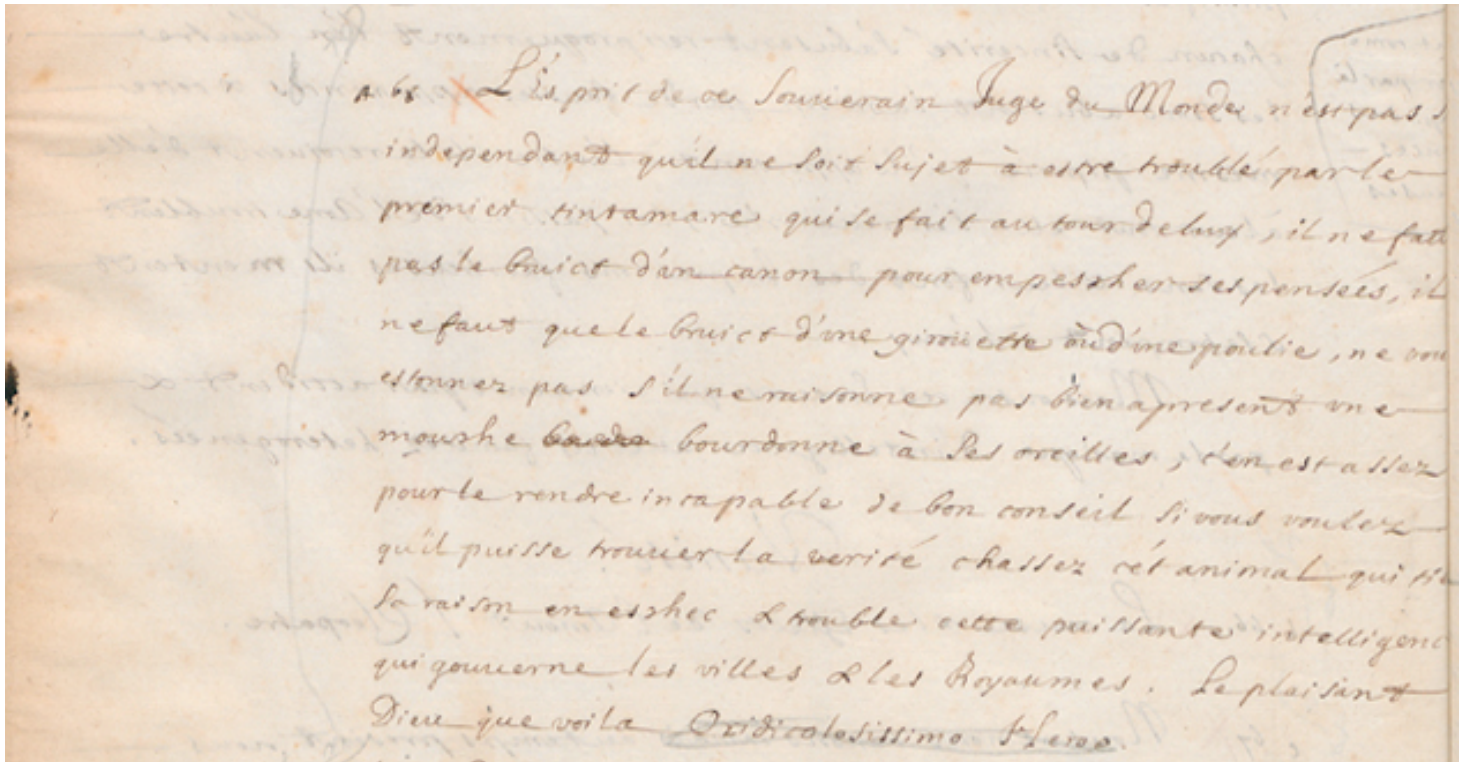 A 68 L'Esprit de ce Souuerain Juge du Monde n'est pas s
independant qu'il ne soit sujet à estre troublé par le
premier tintamare qui se fait autour de luy, il ne faut
pas le bruict d'un canon pour empescher ses pensées, il
ne faut que le bruict d'vne girouette ou d'vne poulie, ne vou
estonnez pas s'il ne raisonne pas bien apresent vne
mouche bourdonne à ses oreilles, c'en est assez
pour le rendre incapable de bon conseil si vous voulez
qu'il puisse trouuer la verité chassez cét animal qui ti
sa raison en eschec & trouble cette puissante intelligenc
qui gouuerne les villes & les Royaumes. Le plaisant
Dieu que voila O ridicolosissimo Heroe.